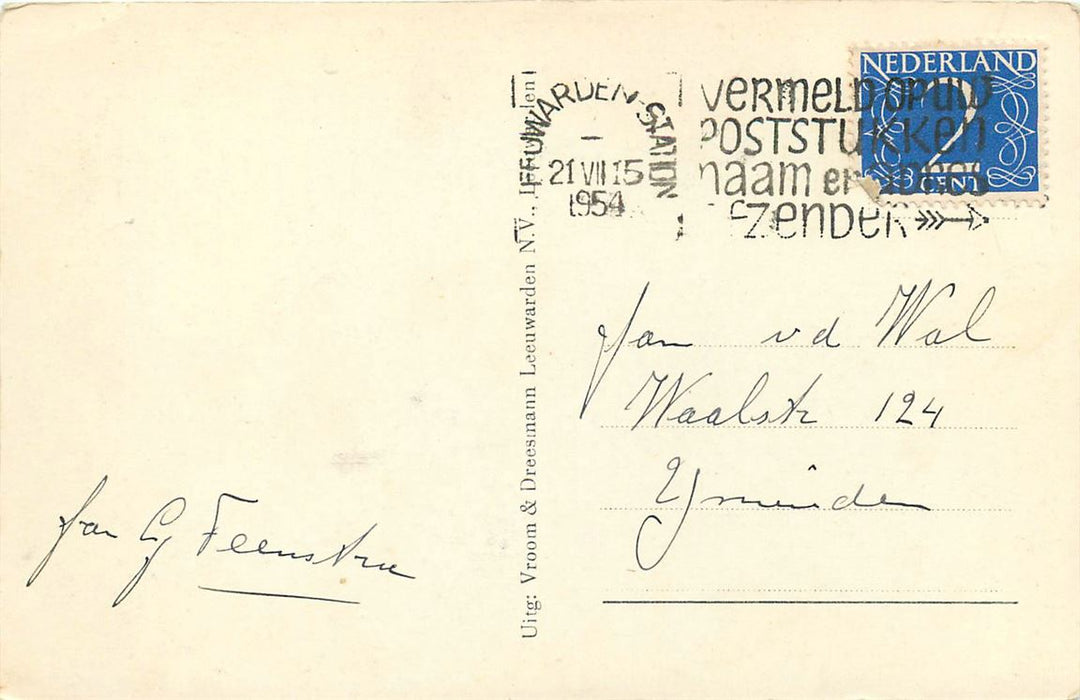 NEDERLAND
2
CENT
LEEUWARDEN-STATION
21 VII 15
1954
VERMELD OP UW
POSTSTUKKEN
naam en adres
afzender
Jan vd Wal
Waalstr 124
Ymuiden
fam G Feenstra
Uitg: Vroom & Dreesmann Leeuwarden N.V., Leeuwarden